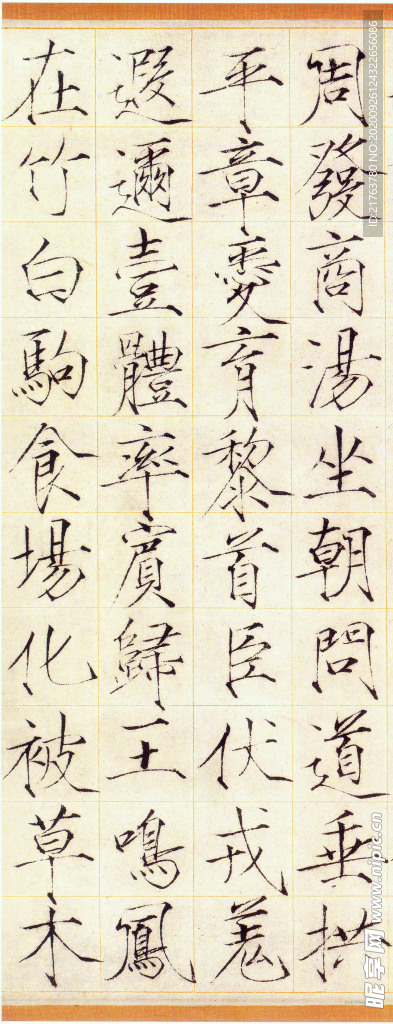 周發商湯坐朝問道垂拱
平章愛育黎首臣伏戎羌
遐邇壹體率賓歸王鳴鳳
在竹白駒食場化被草木
ID:21763780 NO:20200926124322656086
昵享网 www.nipic.cn